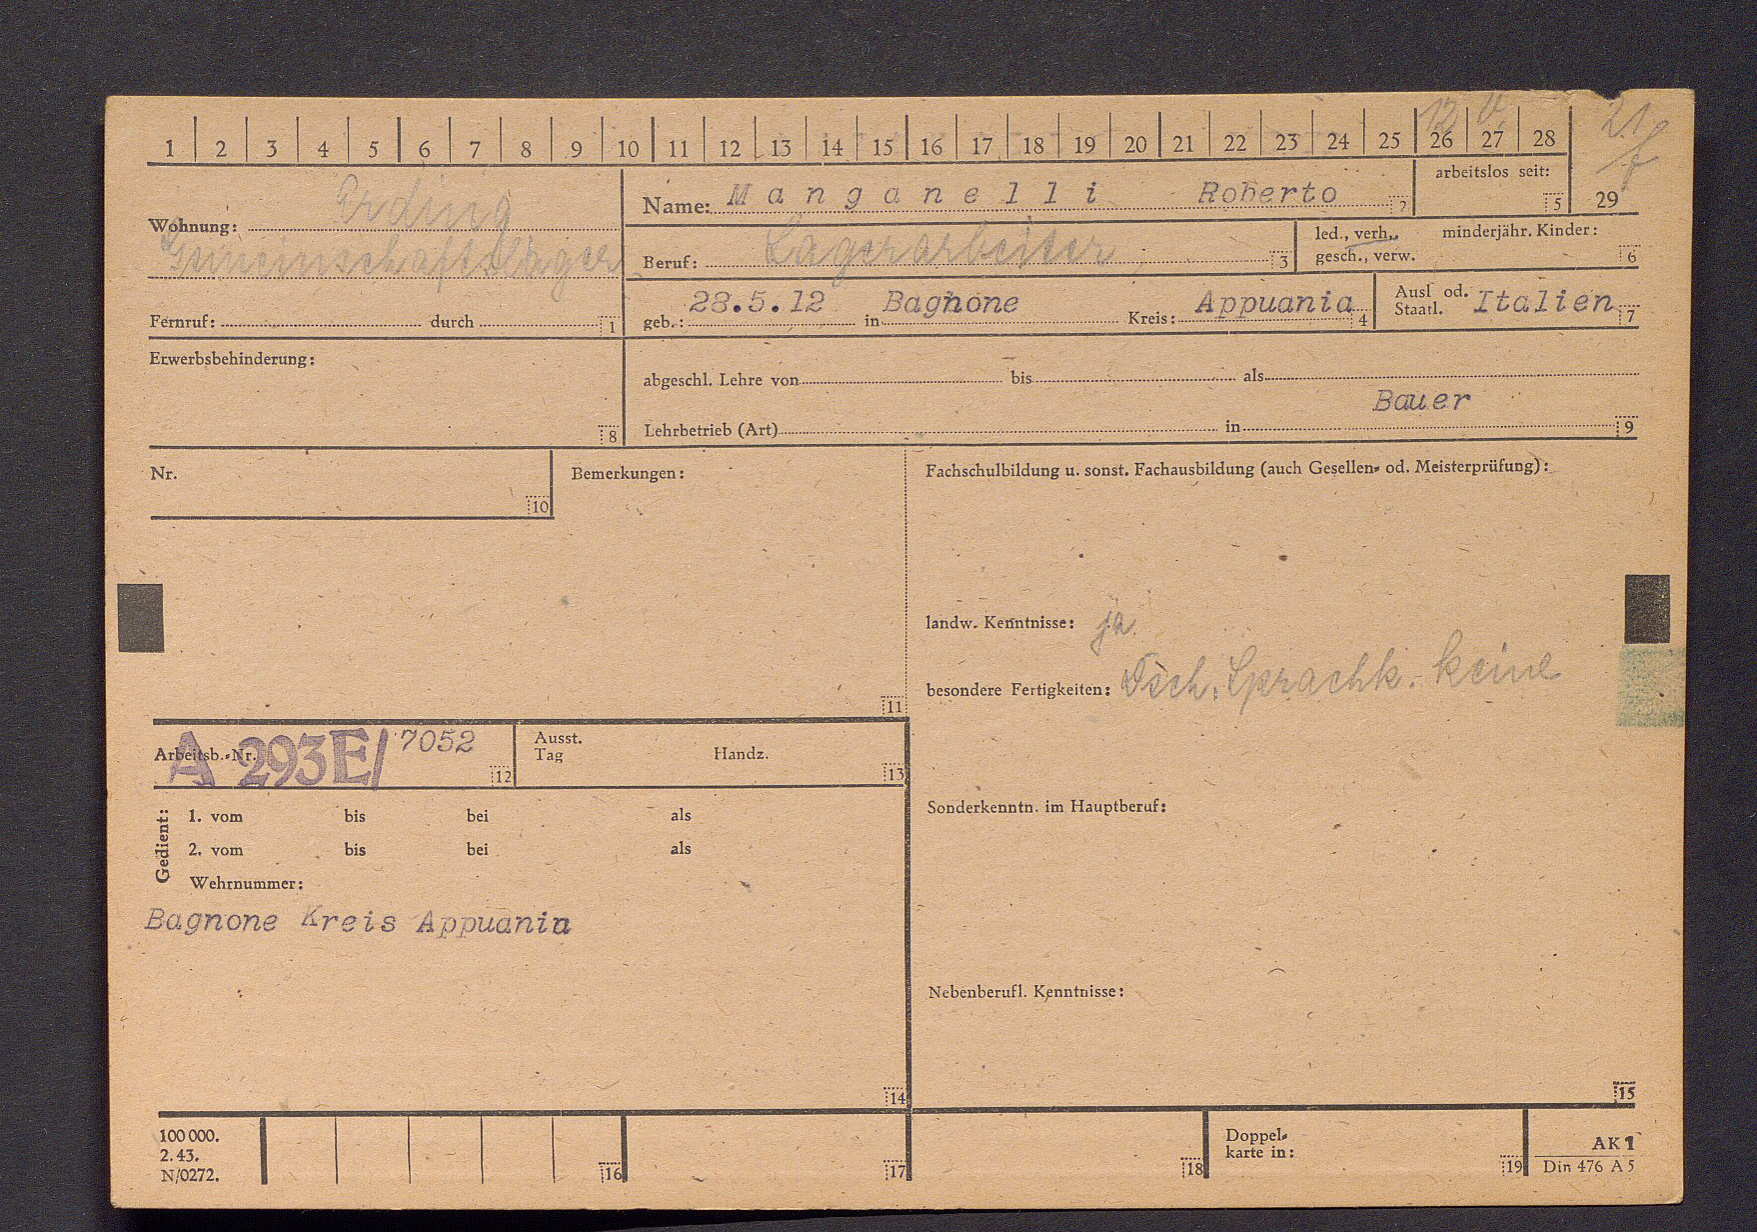 12 V. 21 f
1 2 3 4 5 6 7 8 9 10 11 12 13 14 15 16 17 18 19 20 21 22 23 24 25 26 27 28
29
arbeitslos seit:
5
Wohnung: Erding
Gemeinschaftslager
Fernruf: durch 1
Name: Manganelli Roberto 2
Beruf: Lagerarbeiter 3
led., verh., minderjähr. Kinder:
gesch., verw. 6
geb.: 28.5.12 in Bagnone Kreis: Appuania 4
Ausl od.
Staatl. Italien 7
Erwerbsbehinderung:
8
abgeschl. Lehre von bis als
Bauer
Lehrbetrieb (Art) in 9
Nr.
10
Bemerkungen:
11
Fachschulbildung u. sonst. Fachausbildung (auch Gesellen- od. Meisterprüfung):
landw. Kenntnisse: ja
besondere Fertigkeiten: Dsch. Sprachk. keine
Arbeitsb.-Nr. A 293E/ 7052 12
Ausst.
Tag Handz. 13
Gedient:
1. vom bis bei als
2. vom bis bei als
Wehrnummer:
Bagnone Kreis Appuania
14
Sonderkenntn. im Hauptberuf:
Nebenberufl. Kenntnisse:
15
100 000.
2. 43.
N/0272.
16 17 18
Doppel-
karte in: 19
AK 1
Din 476 A 5